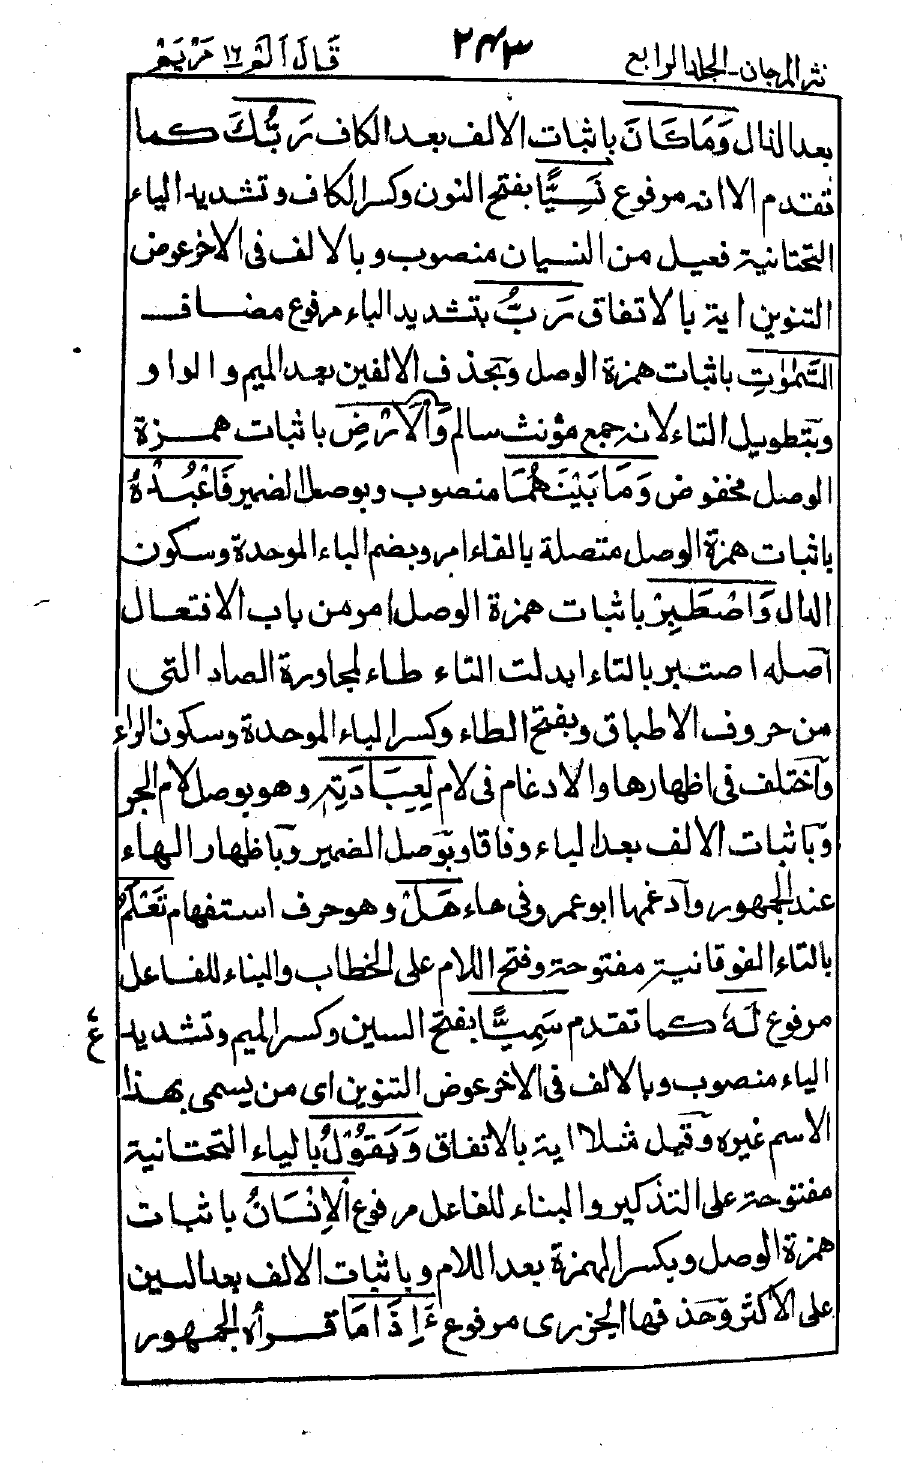 نثر المرجان - الجلد الرابع ٢٤٣ قال الم ١٦ مريم
بعد الذال وَمَا كَانَ باثبات الالف بعد الكاف رَبُّكَ كما
تقدم الا انه مرفوع نَسِيًّا بفتح النون وكسر الكاف وتشديد الياء
التحتانية فعيل من النسيان منصوب وبالالف فى الاخر عوض
التنوين اية بالاتفاق رَبُّ بتشديد الباء مرفوع مضاف
السَّمٰوٰتِ باثبات همزة الوصل وبحذف الالفين بعد الميم والواو
وبتطويل التاء لانه جمع مؤنث سالم وَالْاَرْضِ باثبات همزة
الوصل مخفوض وَمَا بَيْنَهُمَا منصوب وبوصل الضمير فَاعْبُدْهُ
باثبات همزة الوصل متصلة بالفاء امر وبضم الباء الموحدة وسكون
الدال وَاصْطَبِرْ باثبات همزة الوصل امر من باب الافتعال
اصله اصتبر بالتاء ابدلت التاء طاء لمجاورة الصاد التى
من حروف الاطباق وبفتح الطاء وكسر الباء الموحدة وسكون الراء
واختلف فى اظهارها والادغام فى لام لِعِبَادَتِهٖ وهو بوصل لام الجر
وباثبات الالف بعد الباء وفاقا وبوصل الضمير وباظهار الهاء
عند الجمهور وادغمها ابو عمرو فى هاء هَلْ وهو حرف استفهام تَعْلَمُ
بالتاء الفوقانية مفتوحة وفتح اللام على الخطاب والبناء للفاعل
مرفوع لَهٗ كما تقدم سَمِيًّا بفتح السين وكسر الميم وتشديد
ع
الياء منصوب وبالالف فى الاخر عوض التنوين اى من يسمى بهذا
الاسم غيره وقيل مثلا اية بالاتفاق وَيَقُوْلُ بالياء التحتانية
مفتوحة على التذكير والبناء للفاعل مرفوع الْاِنْسَانُ باثبات
همزة الوصل وبكسر الهمزة بعد اللام وباثبات الالف بعد السين
على الاكثر وحذفها الجزرى مرفوع ءَاِذَا مَا قرأه الجمهور